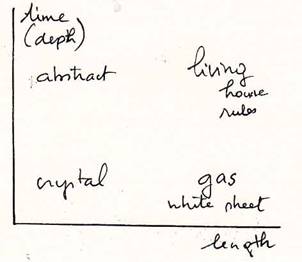 time
(depth)
abstract
living
house
rules
crystal
gas
white sheet
length